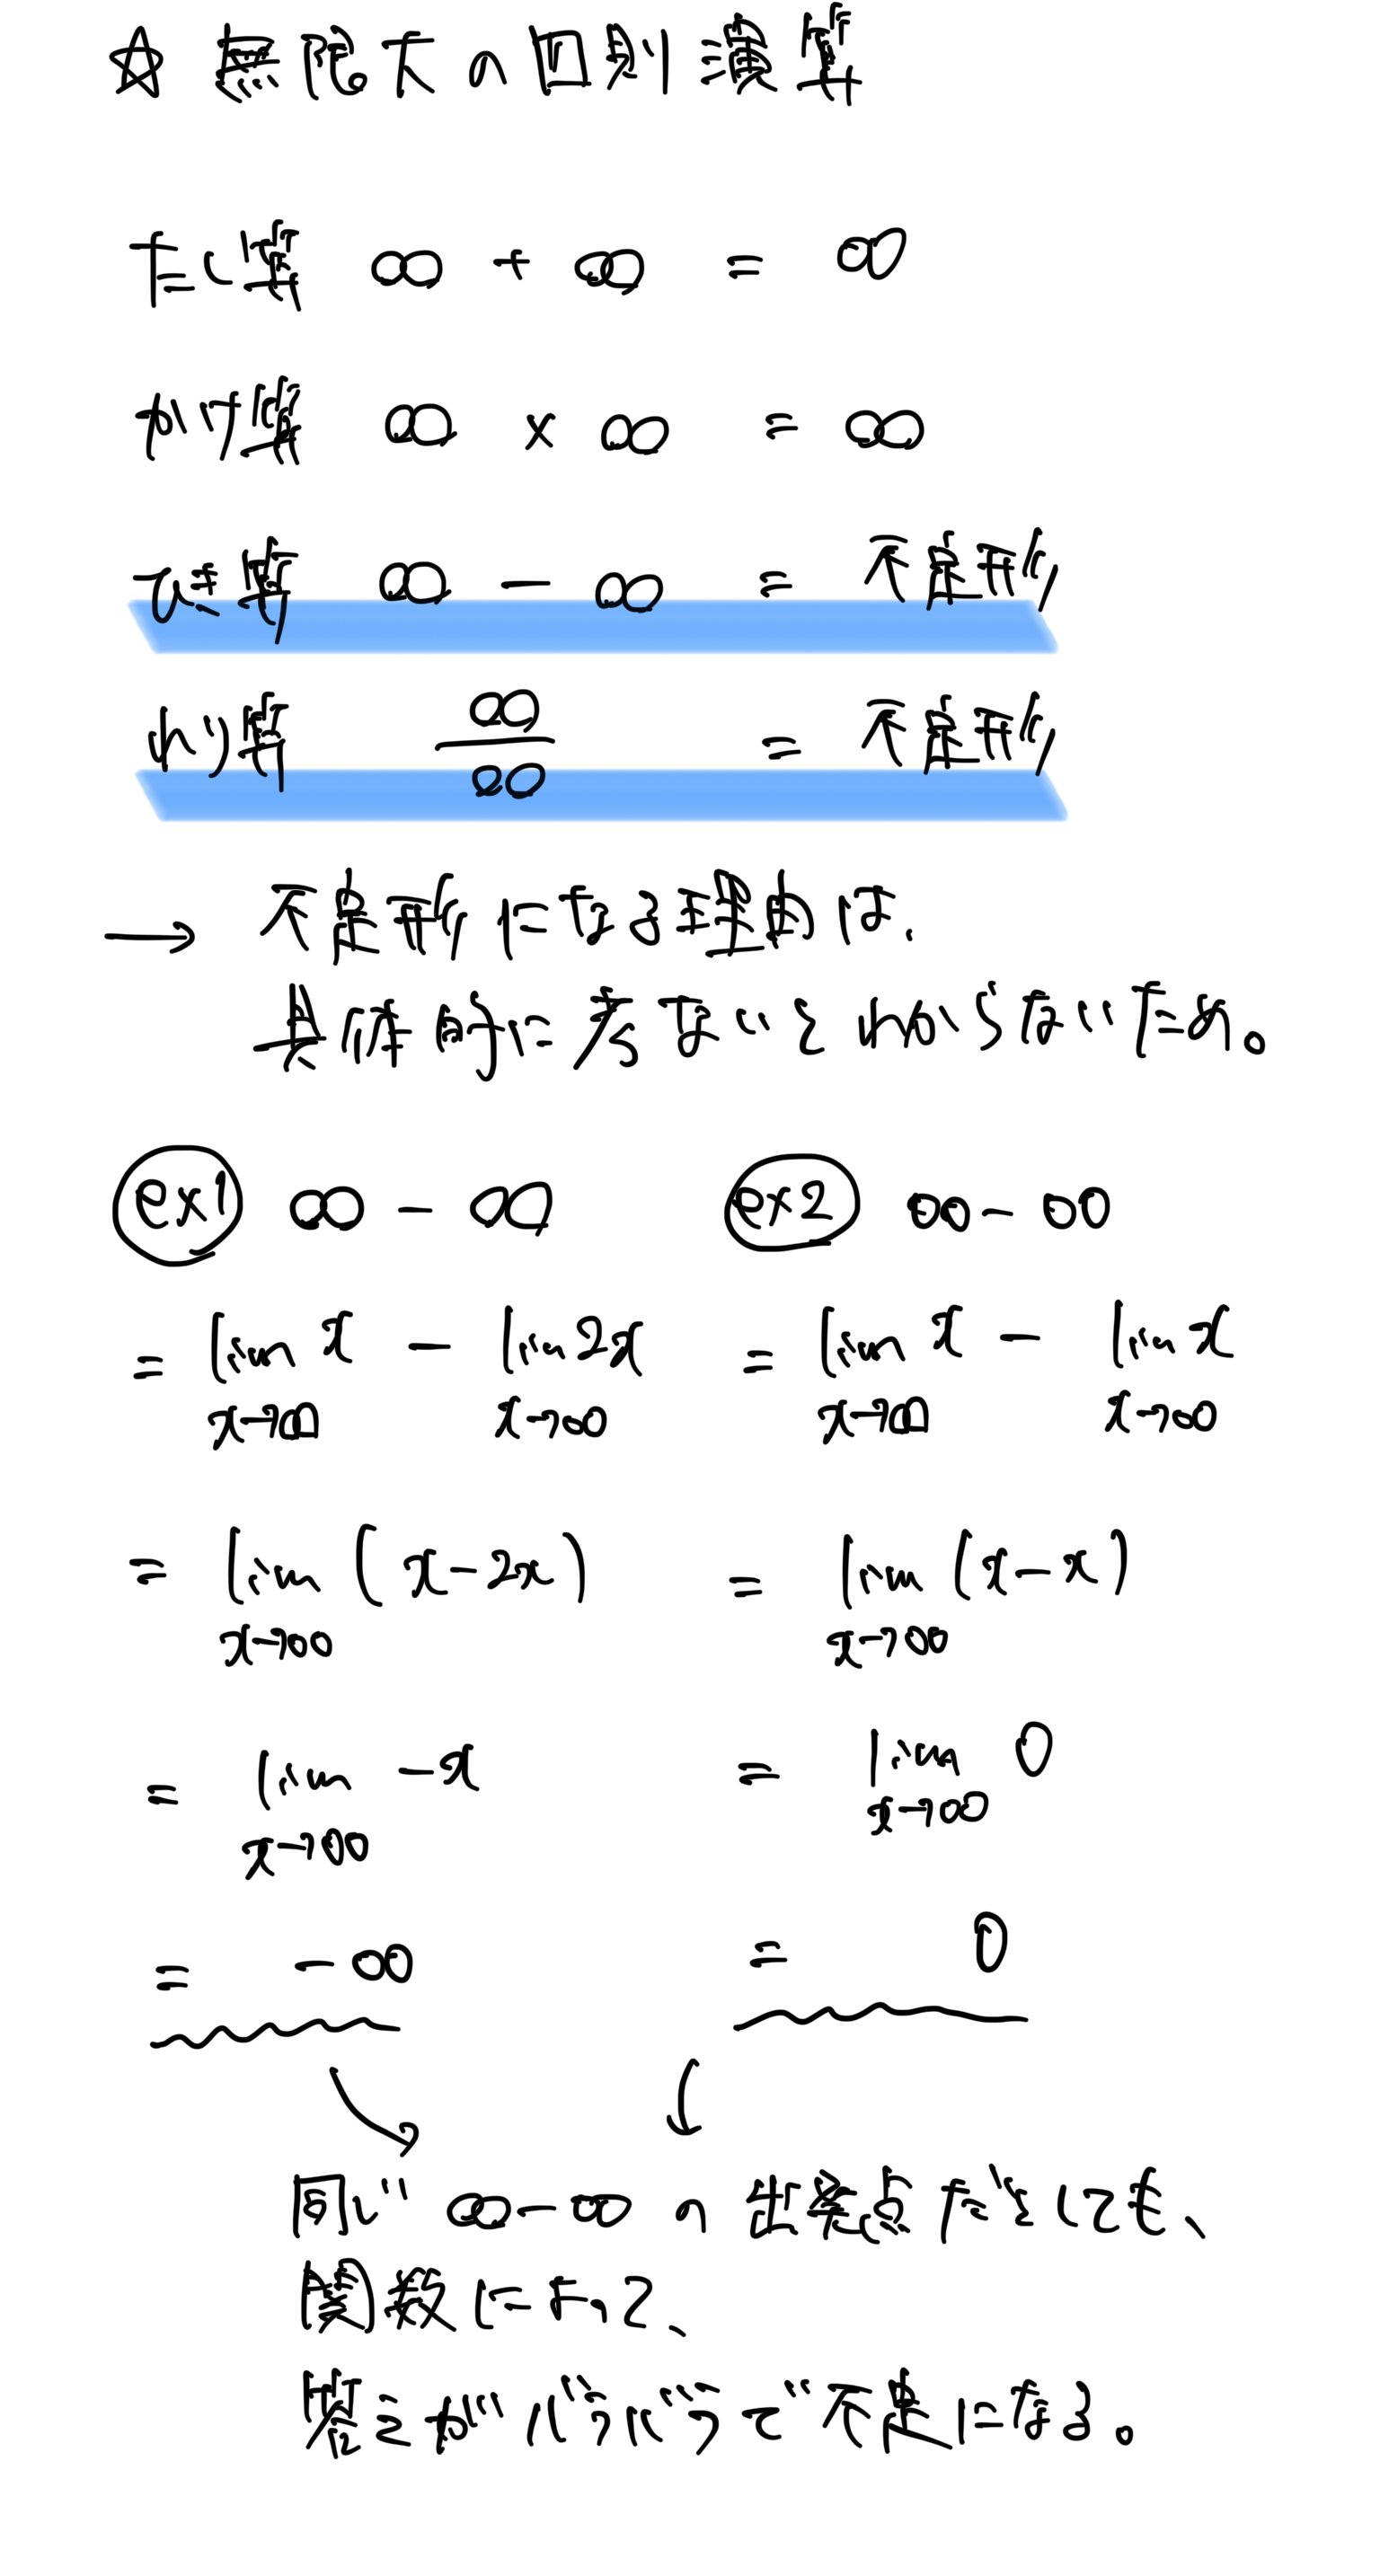 ☆ 無限大の四則演算
たし算 ∞ + ∞ = ∞
かけ算 ∞ × ∞ = ∞
ひき算 ∞ - ∞ = 不定形
わり算 ∞/∞ = 不定形
→ 不定形になる理由は、
具体的に考ないとわからないため。
ex1 ∞ - ∞
= lim x→∞ x - lim x→∞ 2x
= lim x→∞ (x-2x)
= lim x→∞ -x
= -∞
ex2 ∞-∞
= lim x→∞ x - lim x→∞ x
= lim x→∞ (x-x)
= lim x→∞ 0
= 0
同じ ∞-∞ の出発点だとしても、
関数によって、
答えがバラバラで不定になる。